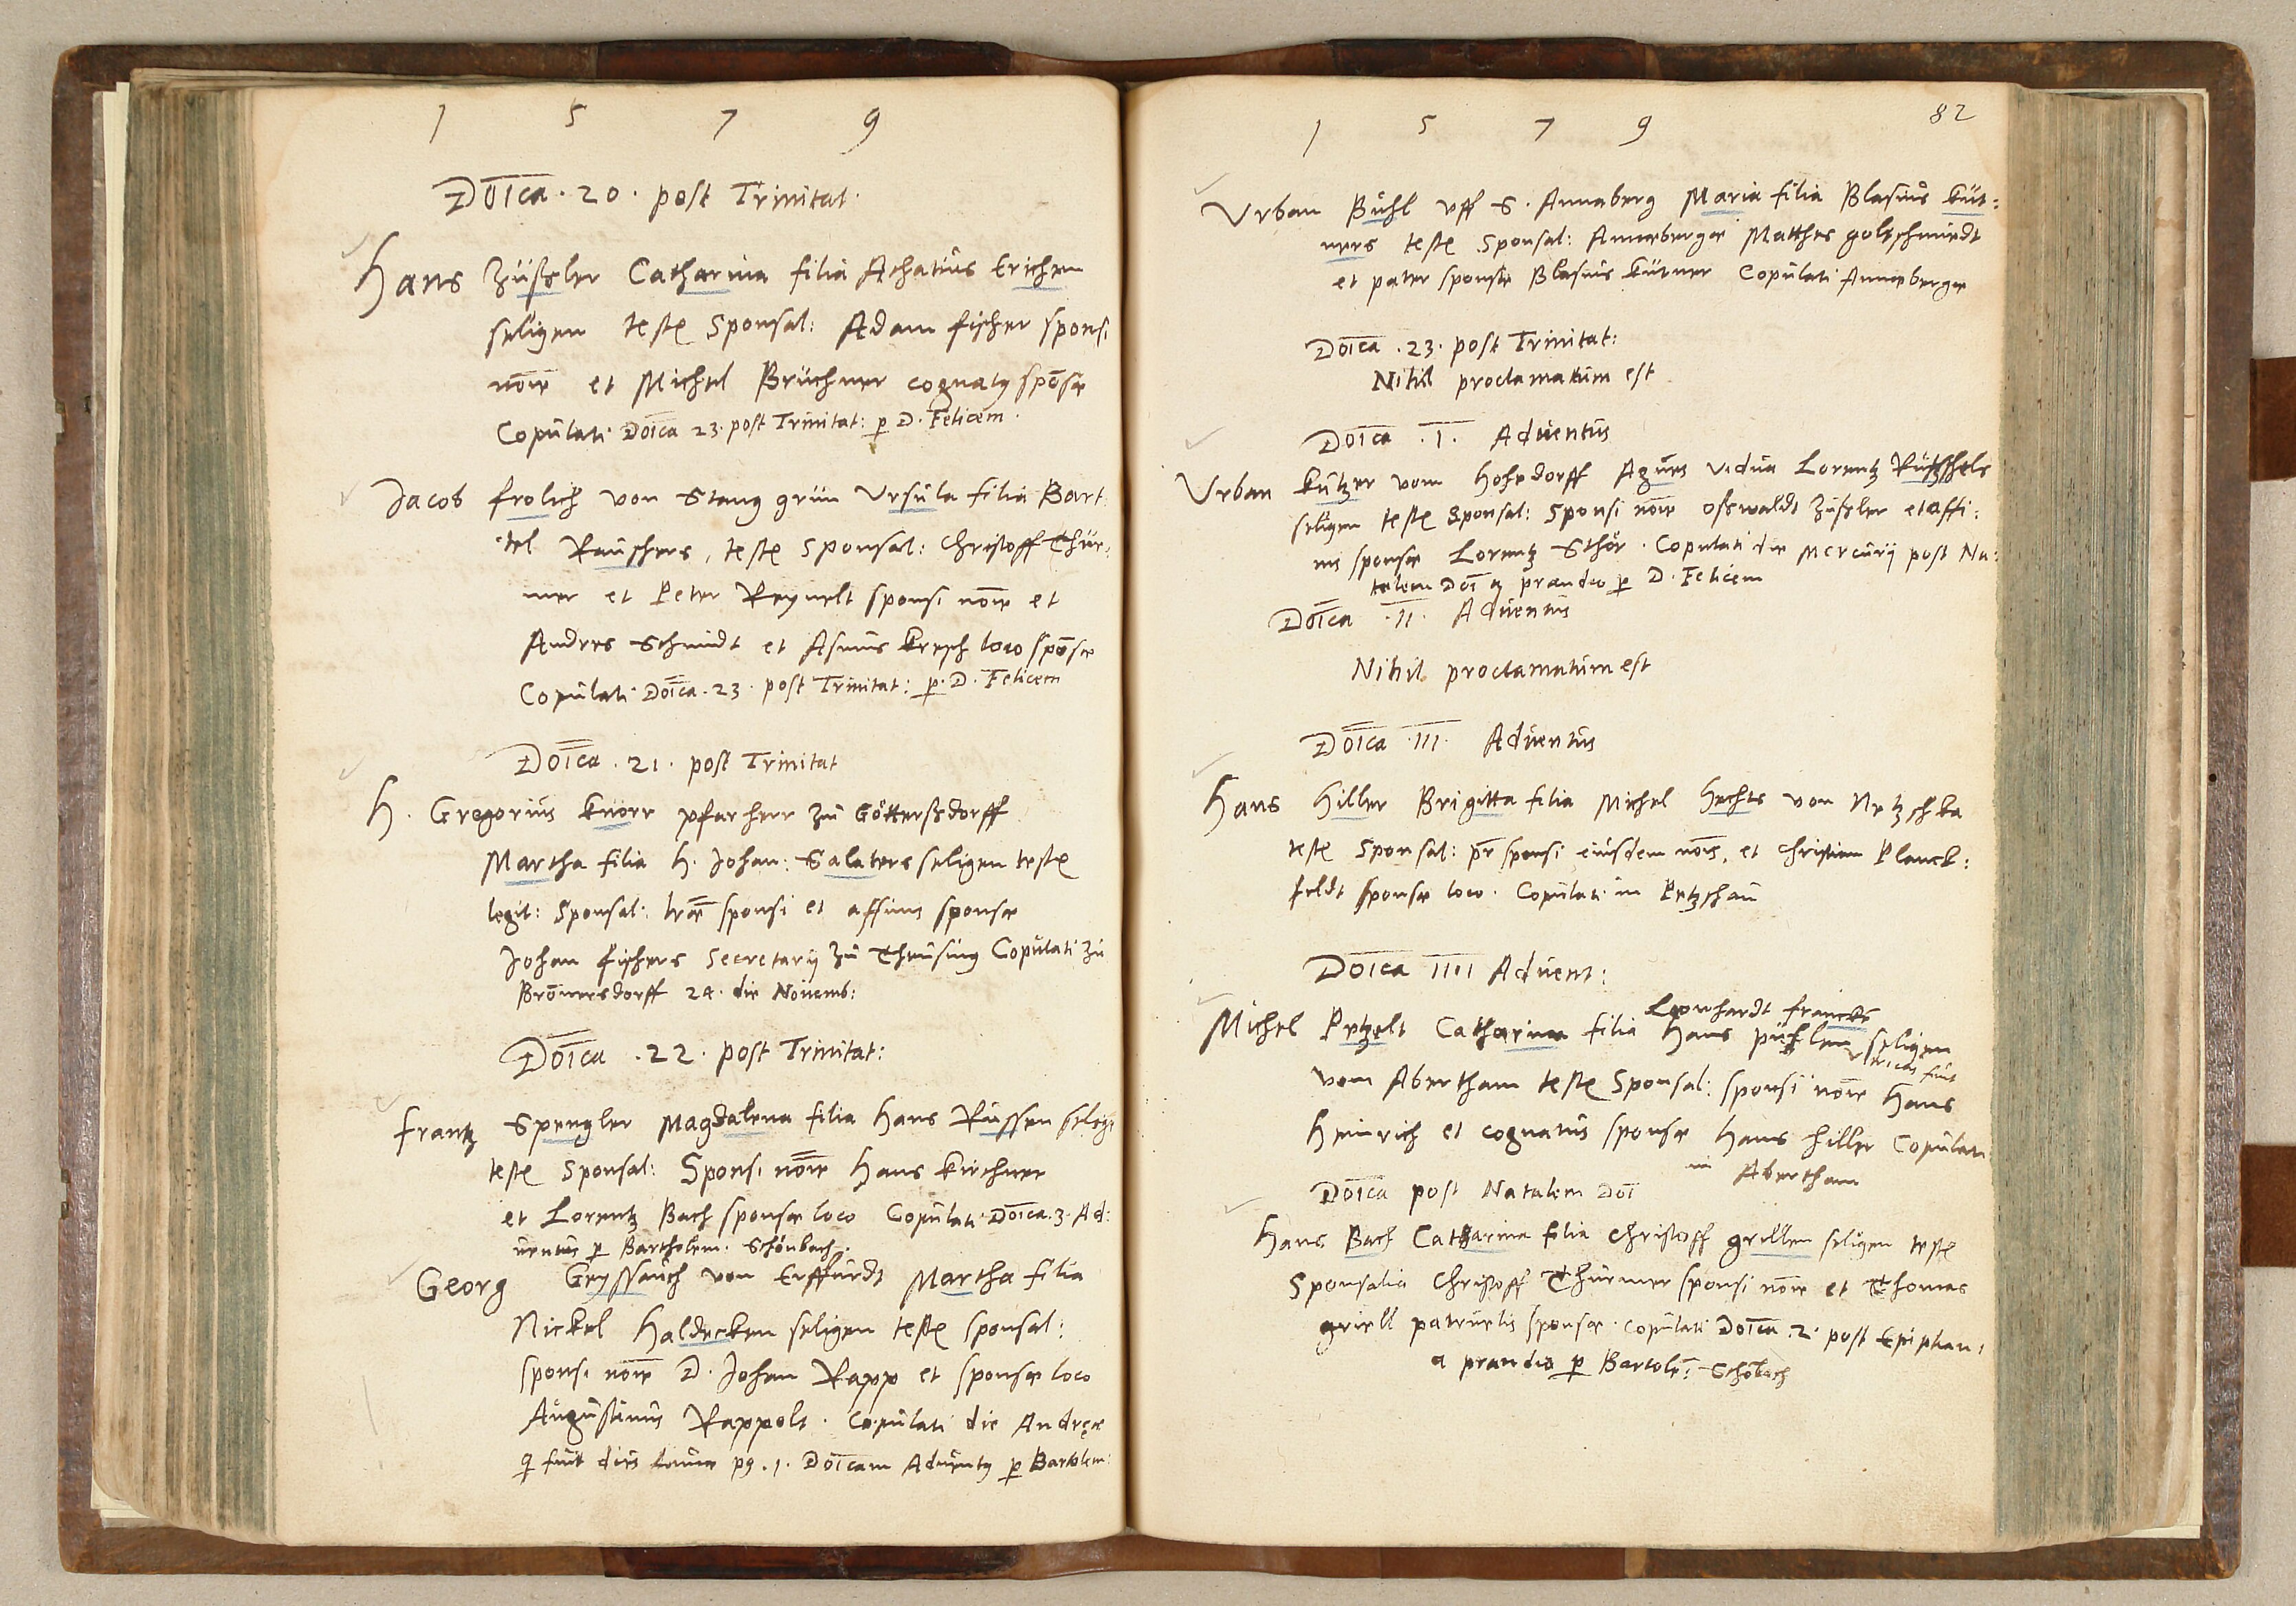 1 5 7 9
Doĩca · 20 · post Trinitat·
Hans Züßler Catharina filia Achatius Erichen
seligen testes Sponsal: Adam fischer sponsi
nõie et Michel Brüchner cognatus spõsæ
Copulati Doĩca 23 · post Trinitat: p D. Felicem ·
Jacob frolich von Stang grün Ursula filia Bart
tel Rauschers, testes Sponsal: Christoff Thür:
mer et Peter Reynelt sponsi nõie et
Andres Schmidt et Asmus Kresch loco spõsæ
Copulati Doĩca · 23 · post Trinitat: p · D · Felicem
Doĩca · 21 · post Trinitat
H. Gregorius Knorr pfarherr zu Götterßdorff
Martha filia H. Johan: Salaters seligen testes
legit: Sponsal: sponsi et affinis sponsæ
Johan fischers Secretarij zu Theusing Copulati zu
Brõmersdorff 24 · die Novemb:
Doĩca · 22 · post Trinitat:
Frantz Spengler Magdalena filia Hans Russen
testes Sponsal: Sponsi nõie Hans Kirchner
et Lorentz Bach sponsæ loco Copulati Doĩca · 3 · Ad:
uentus p Bartholem: Schönbach ·
Georg Geyssauch von Erffurdt Martha filia
Nickel Haldecken seligen testes sponsal:
sponsi nõie D. Johan Rapp et sponsæ loco
Augustinus Rappolt · Copulati die Andreæ
q fuit dies lunæ p9 · 1 · Doĩcam Aduentus p Bartolem:
82
1 5 7 9
Urban Bühl uff S. Annaberg Maria filia Blasius Küt:
ners testes Sponsal: Annæbergæ Matthes goltschmiedt
et pater sponsæ Blasius Kütner Copulati Annæbergæ
Doĩca · 23 · post Trinitat:
Nihil proclamatum est
Doĩca · I · Aduentus
Urban Kutzer vom Hohedorff Agnes vidua Lorentz Rützschels
seligen testes Sponsal: Sponsi nõie Oßwaldt Züßler et affi:
nis sponsæ Lorentz Sthör · Copulati die Mercurij post Na:
talem Doĩ a prandio p D. Felicem
Doĩca · II · Aduentus
Nihil proclamatum est
Doĩca · III · Aduentus
Hans Hiller Brigitta filia Michel Hechts von Netzschka
testes Sponsal: pr sponsi eiusdem nõis, et Christian Planck:
feldt sponsæ loco · Copulati in Petzschau
Doĩca IIII Aduent:
Leonhardt francke
Michel Petzelt Catharina filia Hans seligen
vitricus fuit
vom Abertham testes Sponsal: sponsi nõie Hans
Heinrich et cognatus sponsæ Hans Hiller Copulati
in Abertham
Doĩca post Natalem Doĩ
Hans Bach Catharina filia Christoff grellen seligen testes
Sponsalia Christoff Thürmer sponsi nõie et Thomas
griell patruelis sponsæ · Copulati Doĩca · 2 · post Epiphan:
a prandio p Bartolẽ: Schõbach